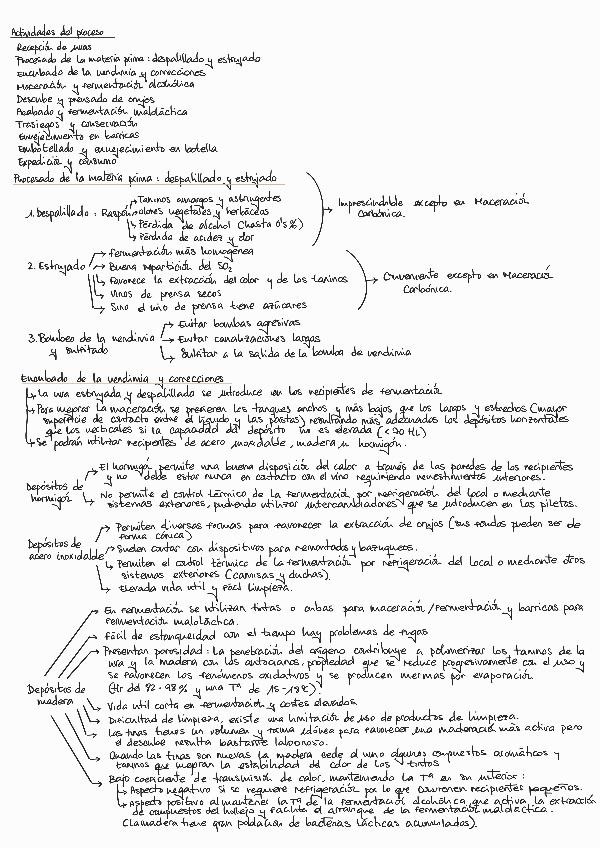 Actividades del proceso
Recepción de uvas
Procesado de la materia prima: despalillado y estrujado
Encubado de la vendimia y correcciones
Maceración y fermentación alcohólica
Descube y prensado de orujos
Acabado y fermentación maloláctica
Trasiegos y conservación
Envejecimiento en barricas
Embotellado y envejecimiento en botella
Expedición y consumo
Procesado de la materia prima: despalillado y estrujado
→ Taninos amargos y astringentes
1. Despalillado: Raspón → olores vegetales y herbáceos
→ Pérdida de alcohol (hasta 0'5%)
→ Pérdida de acidez y color
→ Imprescindible excepto en Maceración
Carbónica.
→ Fermentación más homogénea
2. Estrujado → Buena repartición del SO2
→ Favorece la extracción del color y de los taninos
→ Vinos de prensa secos
→ Sino el vino de prensa tiene azúcares
→ Conveniente excepto en Maceración
Carbónica.
→ Evitar bombas agresivas
3. Bombeo de la vendimia → Evitar canalizaciones largas
y sulfitado → Sulfitar a la salida de la bomba de vendimia
Encubado de la vendimia y correcciones
→ La uva estrujada y despalillada se introduce en los recipientes de fermentación
→ Para mejorar la maceración se prefieren los tanques anchos y más bajos que los largos y estrechos (mayor
superficie de contacto entre el líquido y las pastas) resultando más adecuados los depósitos horizontales
que los verticales si la capacidad del depósito no es elevada (<20 HL)
→ Se podrán utilizar recipientes de acero inoxidable, madera u hormigón.
Depósitos de
hormigón
→ El hormigón permite una buena disposición del calor a través de las paredes de los recipientes
y no debe estar nunca en contacto con el vino requiriendo revestimientos interiores.
→ No permite el control térmico de la fermentación por refrigeración del local o mediante
sistemas exteriores, pudiendo utilizar intercambiadores que se introducen en las piletas.
Depósitos de
acero inoxidable
→ Permiten diversas formas para favorecer la extracción de orujos (sus fondos pueden ser de
forma cónica)
→ Suelen contar con dispositivos para remontados y bazuqueos.
→ Permiten el control térmico de la fermentación por refrigeración del local o mediante otros
sistemas exteriores (camisas y duchas).
→ Elevada vida útil y fácil limpieza.
Depósitos de
madera
→ En fermentación se utilizan tintas o cubas para maceración/fermentación y barricas para
fermentación maloláctica.
→ Fácil de estanqueidad con el tiempo hay problemas de fugas
→ Presentan porosidad: La penetración del oxígeno contribuye a polimerizar los taninos de la
uva y la madera con los antocianos, propiedad que se reduce progresivamente con el uso y
se favorecen los fenómenos oxidativos y se producen mermas por evaporación
(Hr del 92-98% y una Tª de 15-18ºC).
→ Vida útil corta en fermentación y costes elevados
→ Dificultad de limpieza, existe una limitación de uso de productos de limpieza.
→ Las tinas tienen un volumen y forma idónea para favorecer una maceración más activa pero
el descube resulta bastante laborioso.
→ Cuando las tinas son nuevas la madera cede al vino algunos compuestos aromáticos y
taninos que mejoran la estabilidad del color de los tintos
→ Bajo coeficiente de transmisión de calor, manteniendo la Tª en su interior:
→ Aspecto negativo si se requiere refrigeración por lo que convienen recipientes pequeños.
→ Aspecto positivo al mantener la Tª de la fermentación alcohólica que activa la extracción
de compuestos del hollejo y facilita el arranque de la fermentación maloláctica.
(La madera tiene gran población de bacterias lácticas acumuladas).